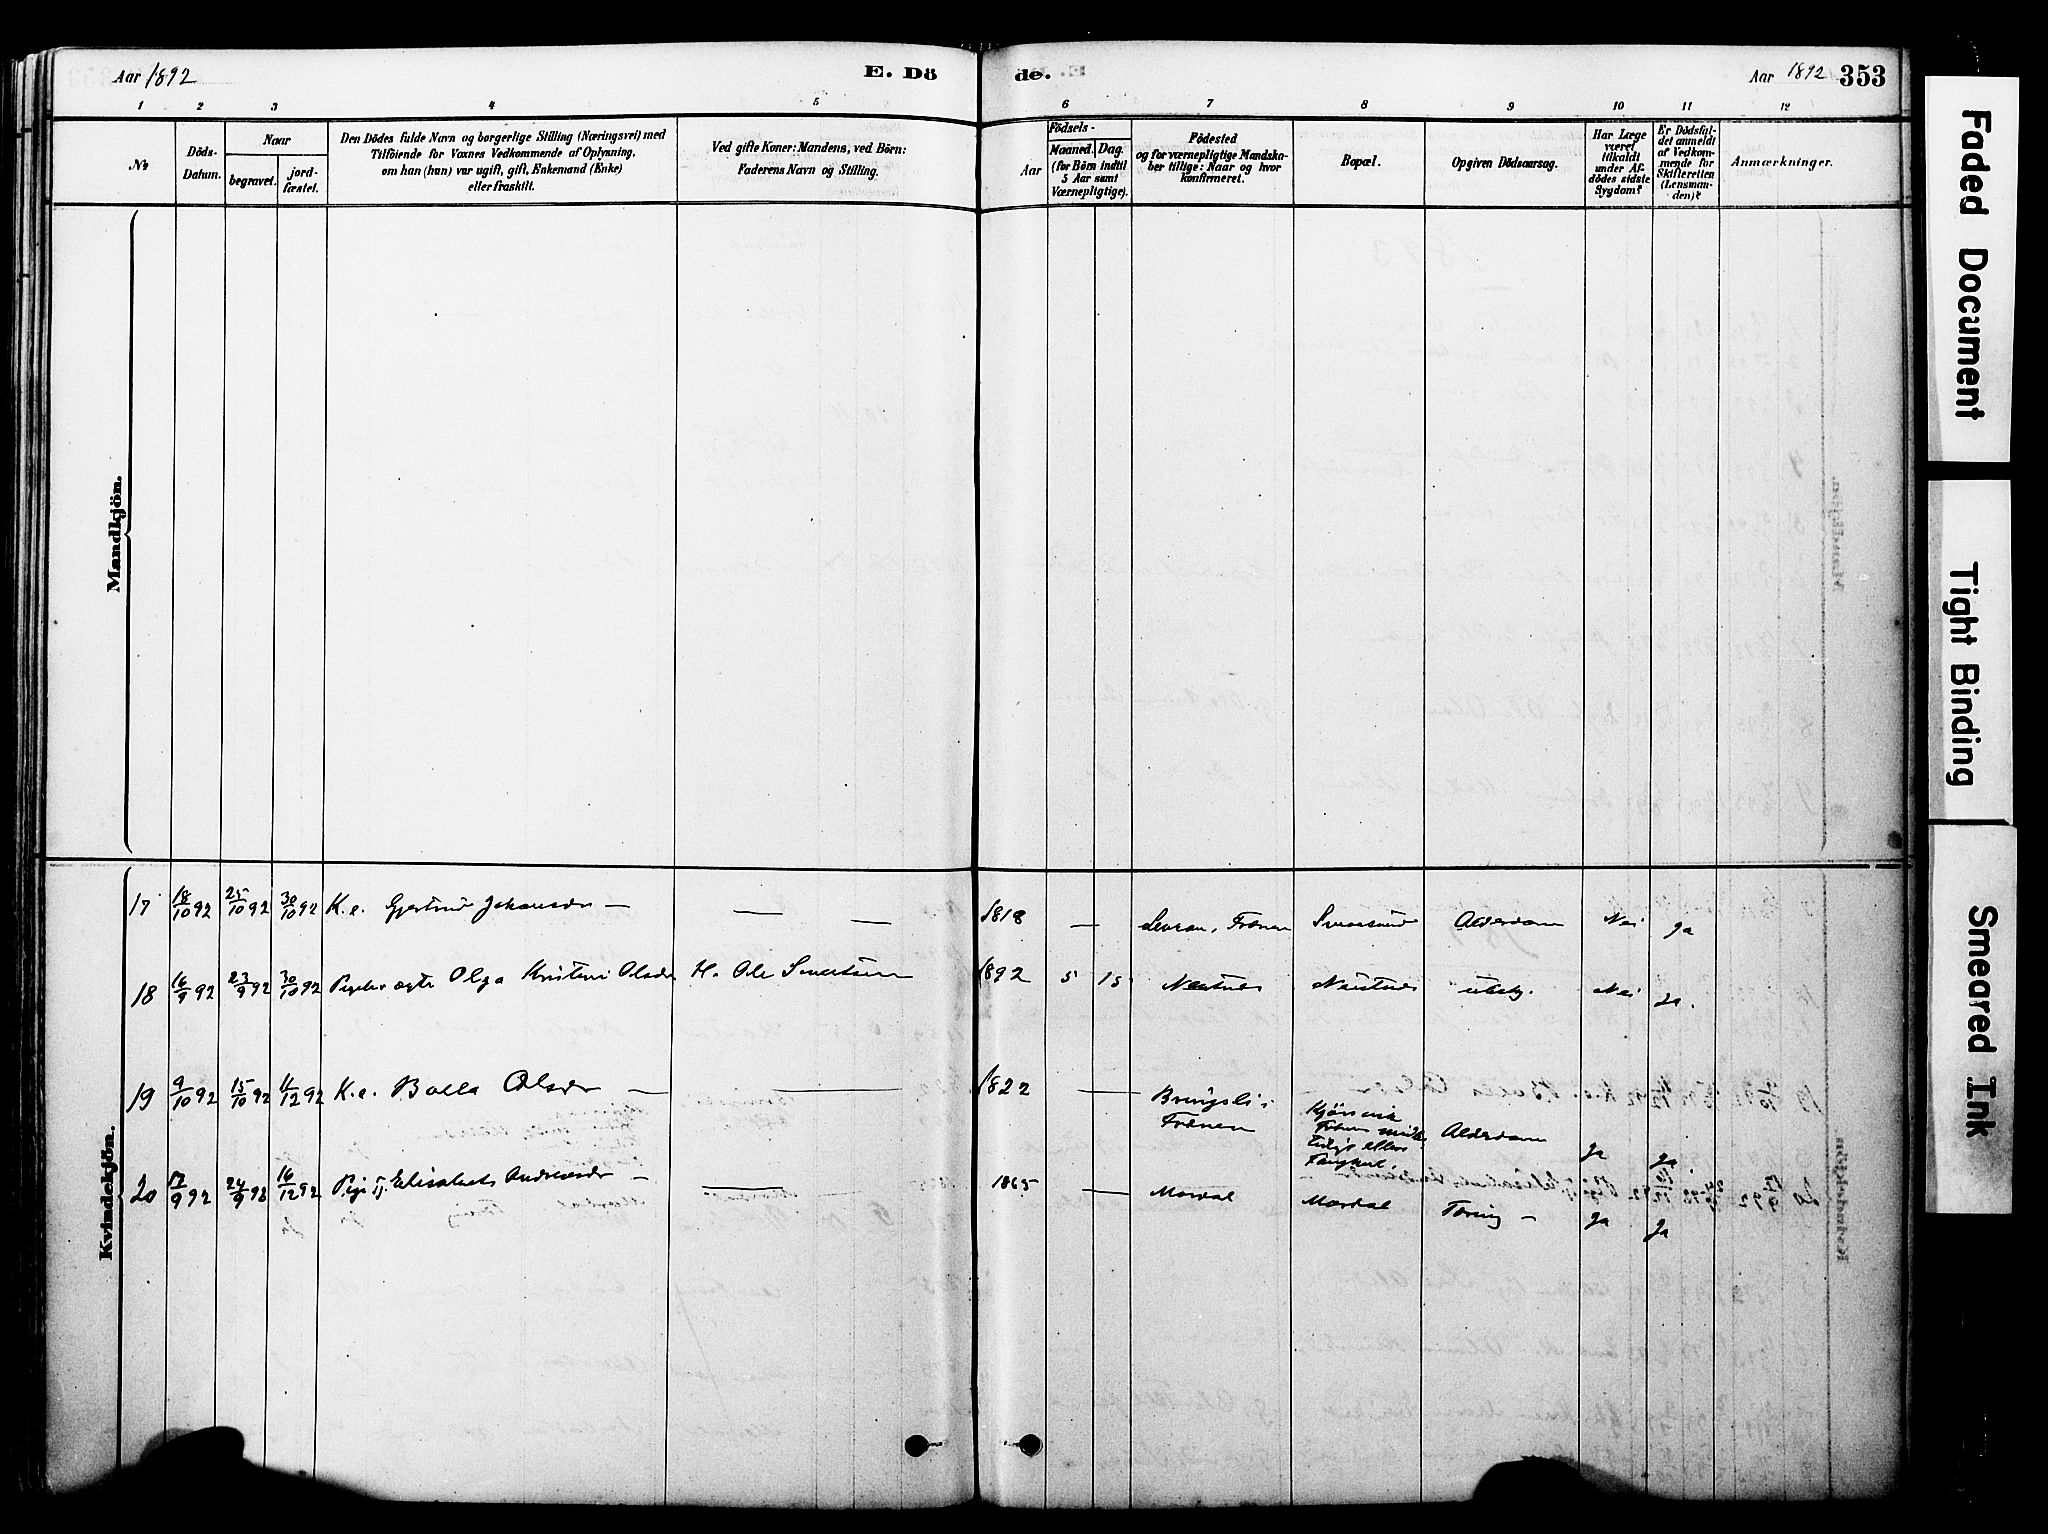 Aar 1892
E. Dö
de.
Aar 1892 353
1 2 3 4 5 6 7 8 9 10 11 12
No
Döds-
Datum.
Naar
begravet.
jord-
fæstet.
Den Dödes fulde Navn og borgerlige Stilling (Næringsvei) med
Tilföiende for Voxnes Vedkommende af Oplysning,
om han (hun) var ugift, gift, Enkemand (Enke)
eller fraskilt.
Ved gifte Koner: Mandens, ved Börn:
Faderens Navn og Stilling.
Födsels-
Aar
Maaned. Dag.
(for Börn indtil
5 Aar samt
Værnepligtige).
Födested
og for værnepligtige Mandska-
ber tillige: Naar og hvor
konfirmeret.
Bopæl.
Opgiven Dödsaarsag.
Har Læge
været
tilkaldt
under Af-
dödes sidste
Sygdom?
Er Dödsfal-
det anmeldt
af Vedkom-
mende for
Skifteretten
(Lensman-
den)?
Anmærkninger.
Mandkjön.
Kvindekjön.
17 18/10 92 25/10 92 30/10 92 K. e. Gjertrud Johansdr — — — 1818 — Frænen Alderdom Nei Ja
18 16/9 92 23/9 92 30/10 92 Pigeb. ægte Olga Kristine Olsdr H. Ole 1892 5 15 Nastnes Nastnes ubek. Nei Ja.
19 9/10 92 15/10 92 11/12 92 K. e. Olsdr — — 1822 — Bringsli i
Frænen
Alderdom Ja Ja
20 17/9 92 24/9 92 16/12 92 Pige Elisabet Andreasdr — — 1865 — Mordal Mordal Tæring — Ja Ja
Faded Document
Tight Binding
Smeared Ink